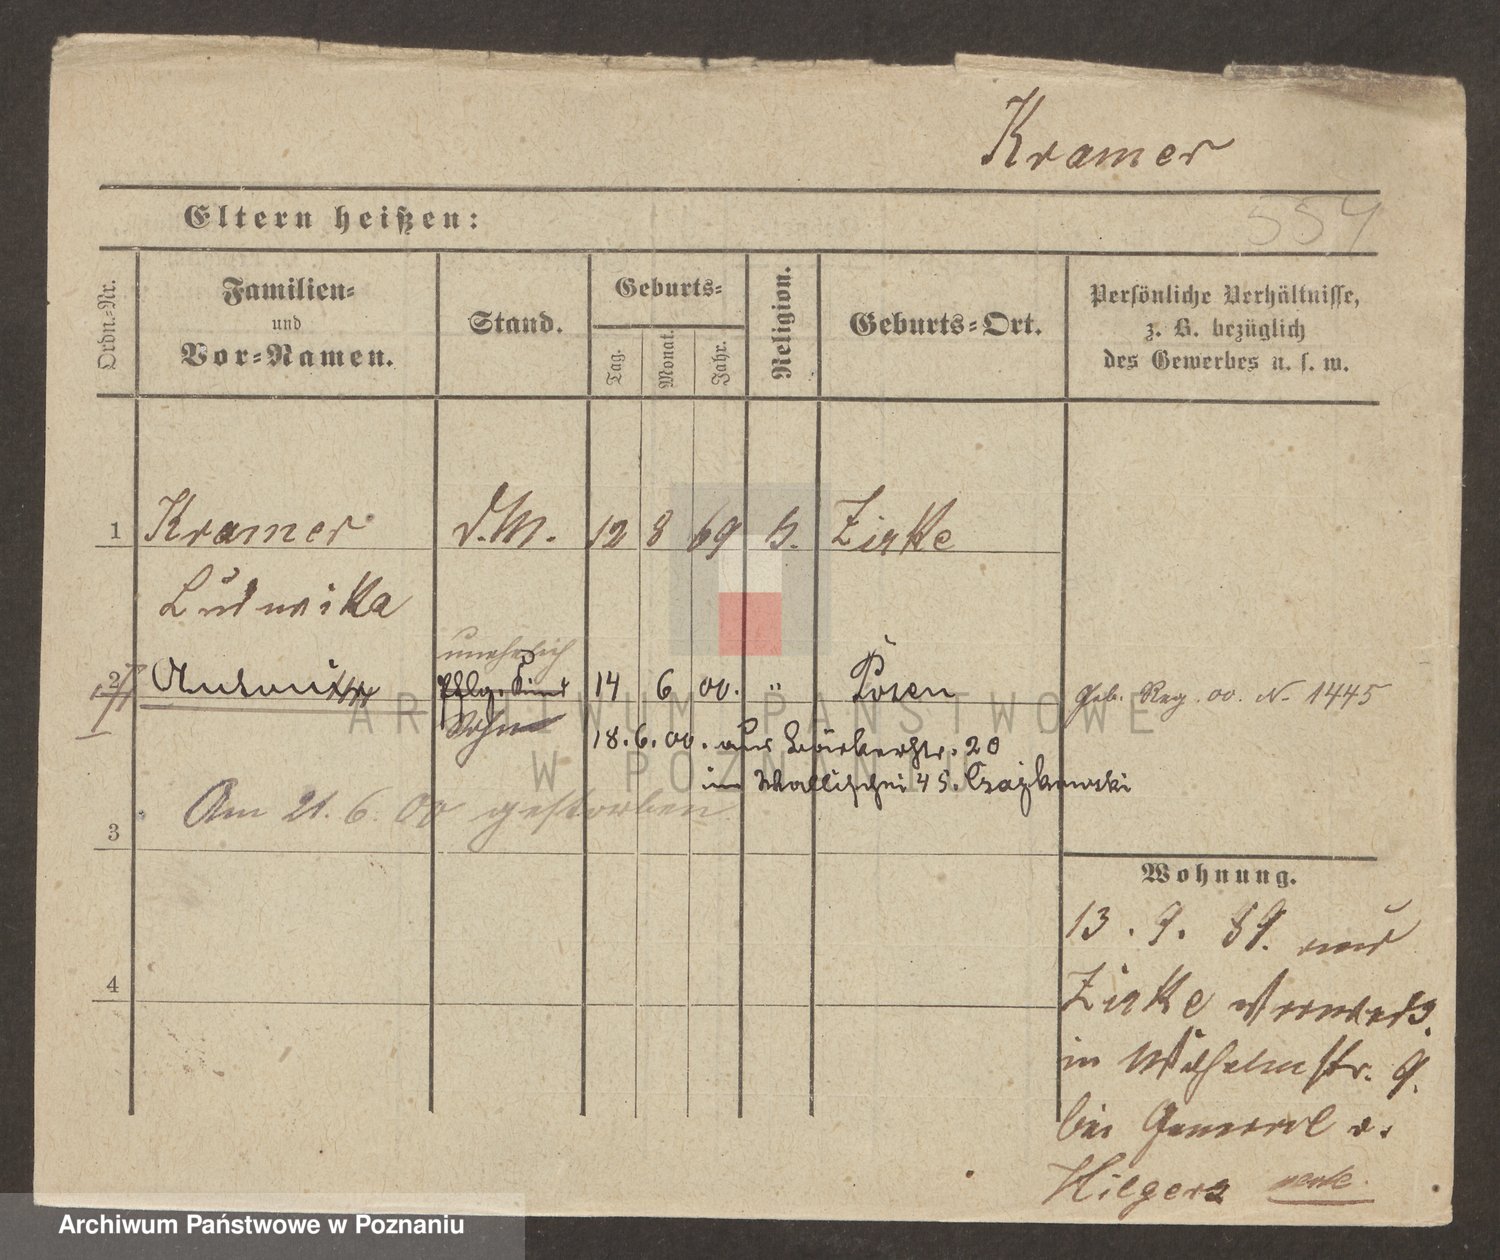 Kramer
554
Eltern heißen:
Ordn.-Nr.
Familien-
und
Vor-Namen.
Stand.
Geburts-
Tag.
Monat.
Jahr.
Religion.
Geburts-Ort.
Persönliche Verhältnisse,
z. B. bezüglich
des Gewerbes u. s. w.
1 Kramer d.M. 12 8 69 Zirke
Ludwika
unehelich
2 Pflg. Kind 14 6 00. " Posen Geb. Reg. 00. N. 1445
Sohn
18. 6. 00. aus 20
in Wallischei 45. Czajkowski
Am 21. 6. 00 gestorben
3
4
Wohnung.
13. 9. 89. aus
Zirke
in Wilhelmstr. 9.
bei General v.
Hilgers
ARCHIWUM PAŃSTWOWE
W POZNANIU
Archiwum Państwowe w Poznaniu